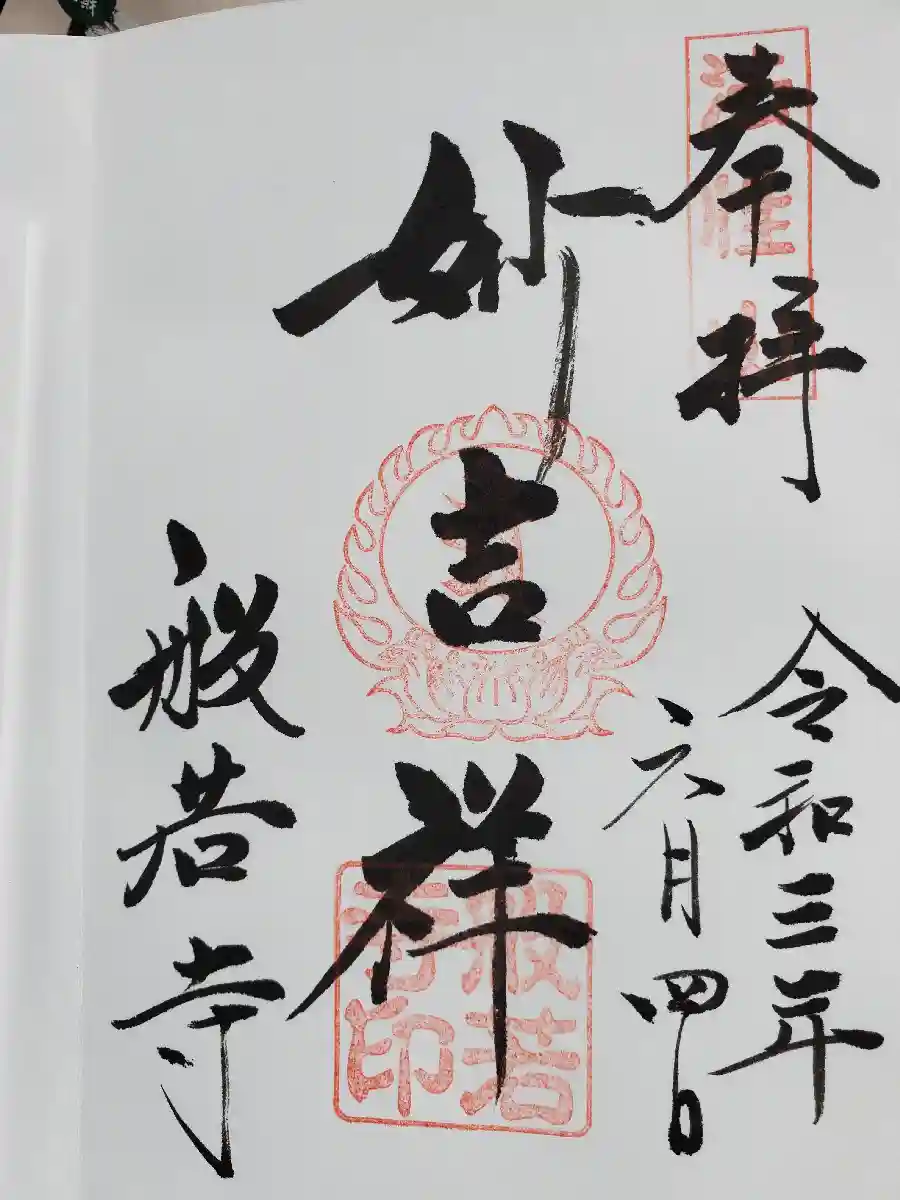 奉拝
令和三年
六月四日
妙吉祥
般若寺
般若
寺印
法性山